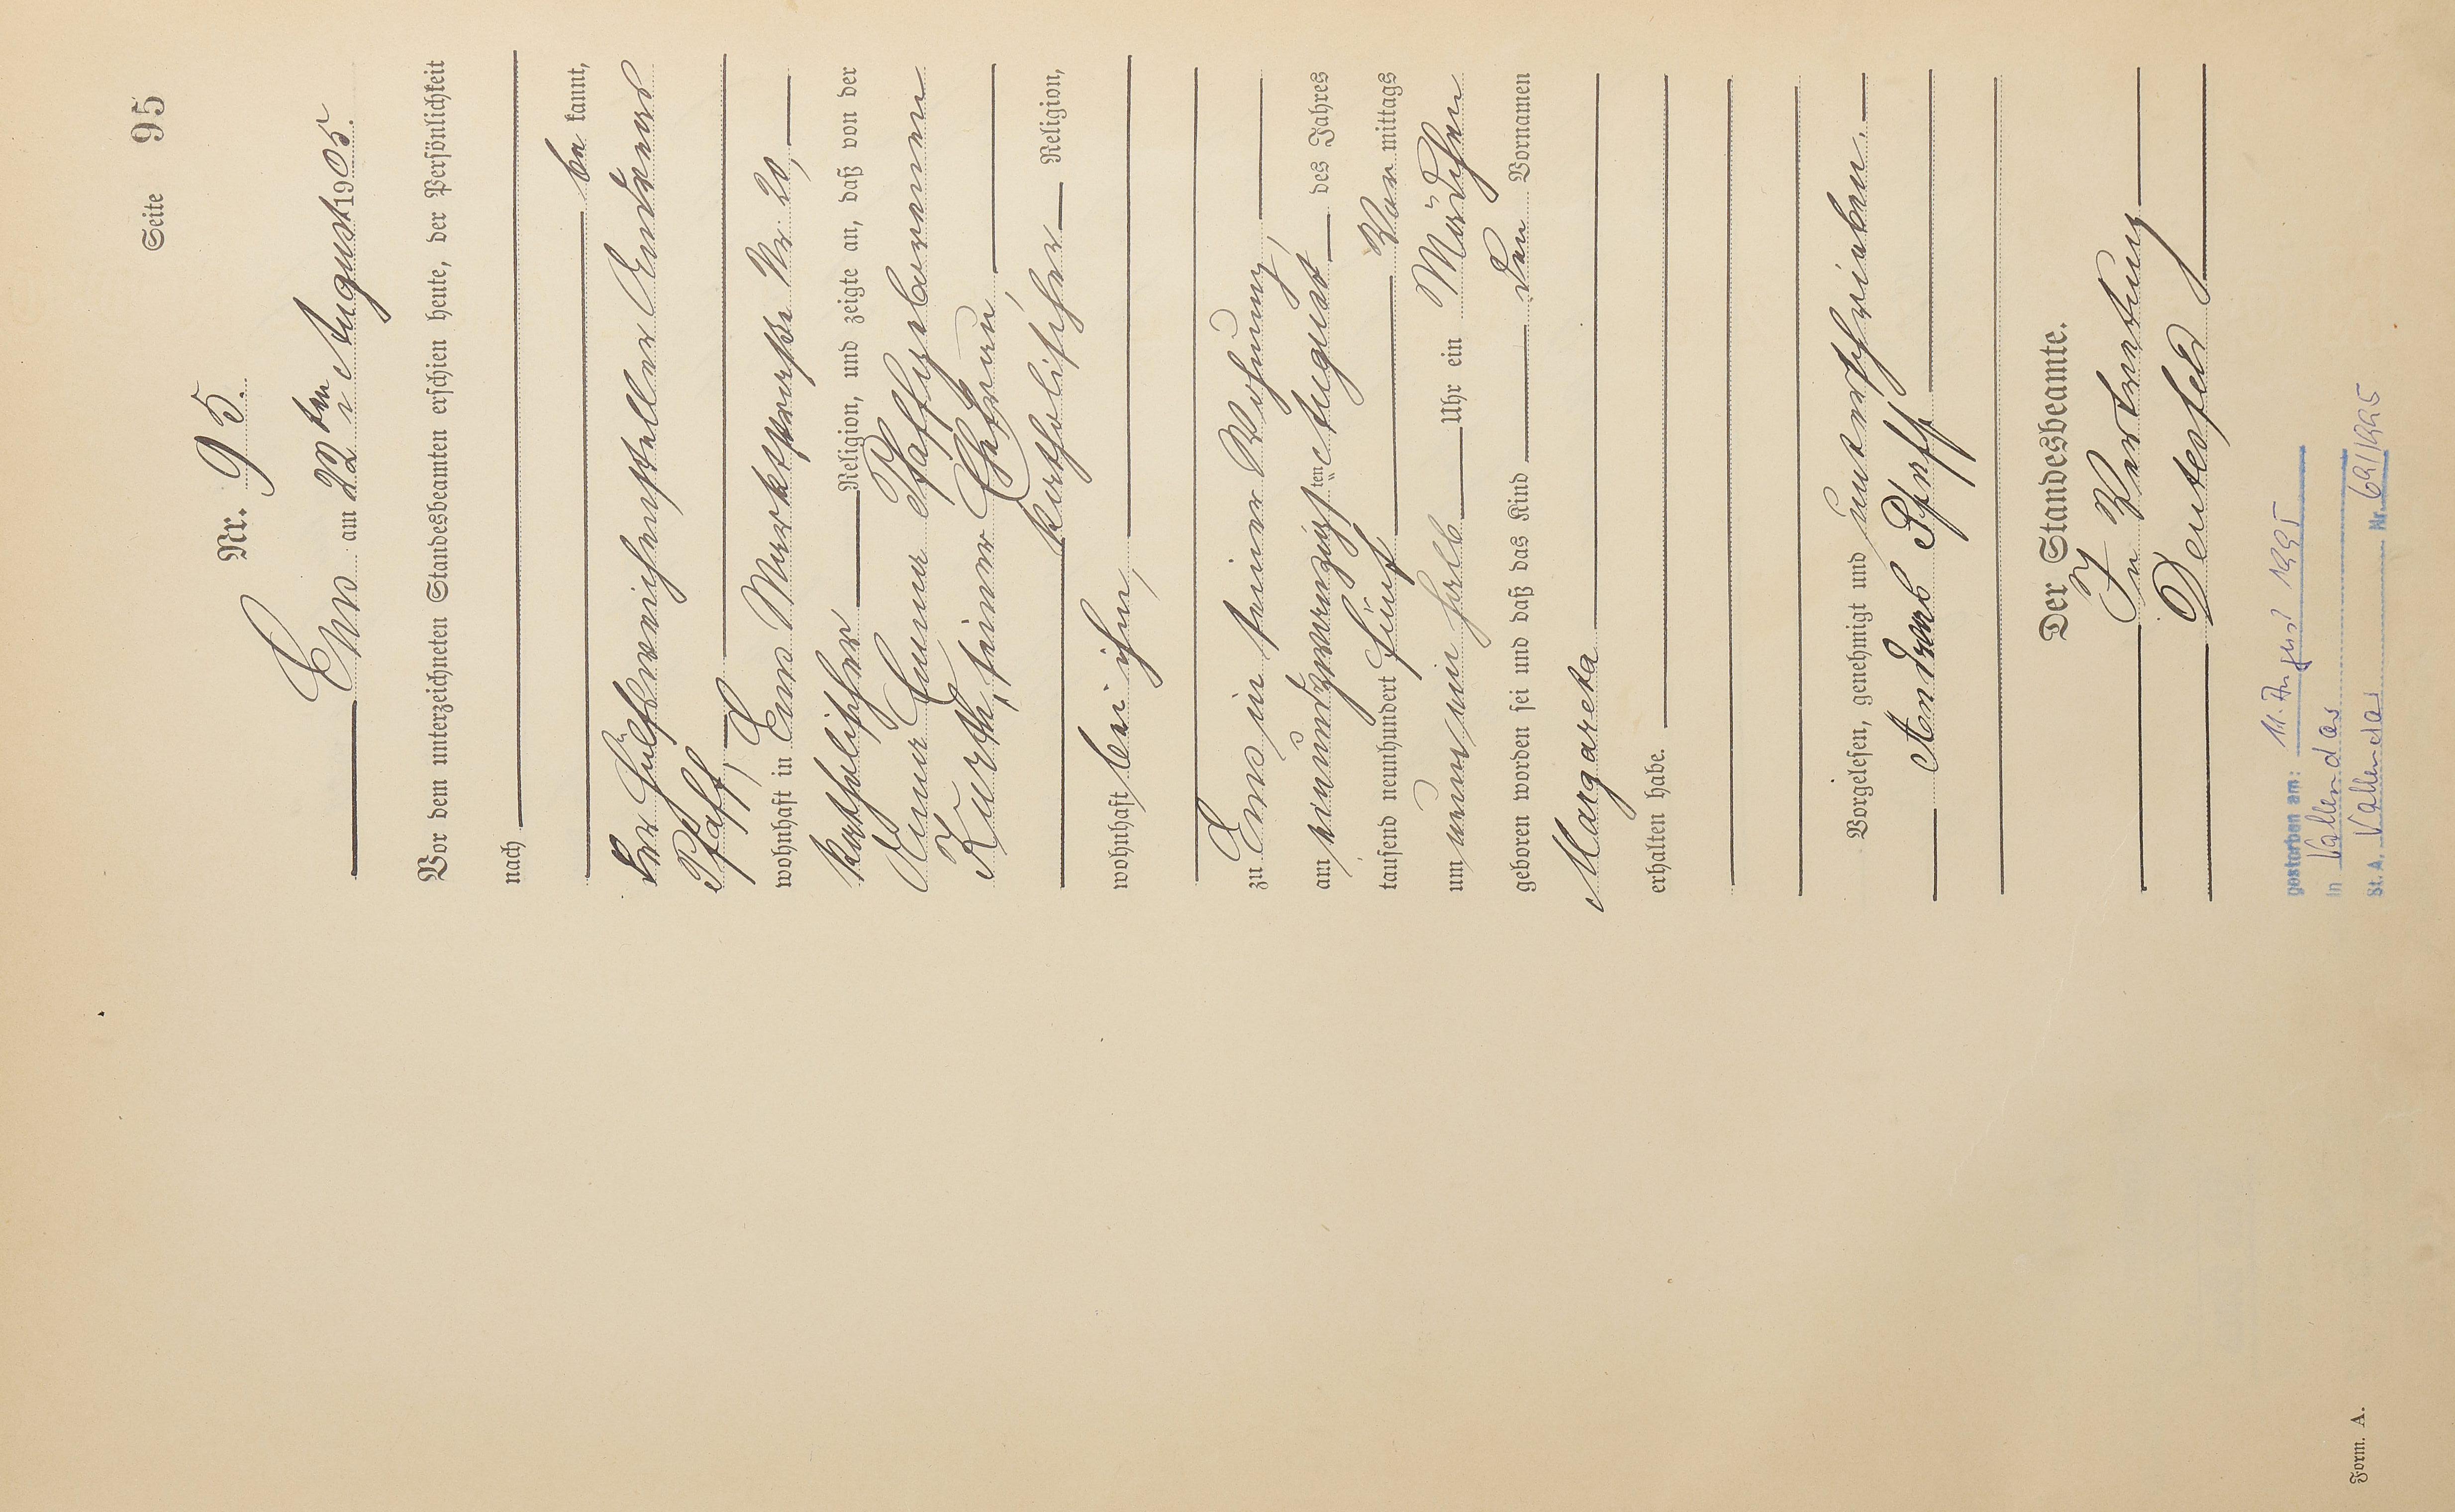 Seite 95
Nr. 95.
Ems am 22ten August 1905.
Vor dem unterzeichneten Standesbeamten erschien heute, der Persönlichkeit
nach
be kannt,
der Hülfsweichensteller Andreas
Pfaff,
wohnhaft in Ems Marktstraße Nr. 20,
katholischer Religion, und zeigte an, daß von der
Anna Emma Pfaff geborenen
Kurth, seiner Ehefrau,
katholischer Religion,
wohnhaft bei ihm,
zu Ems in seiner Wohnung,
am einundzwanzigsten August des Jahres
tausend neunhundert fünf Vor mittags
um neun ein halb Uhr ein Mädchen
geboren worden sei und daß das Kind den Vornamen
Margareta
erhalten habe.
Vorgelesen, genehmigt und unterschrieben.
Andreas Pfaff
Der Standesbeamte.
In Vertretung
Deutesfeld
gestorben am: 11. August 1995
in Vallendar
St. A. Vallendar Nr. 69/1995
Form. A.